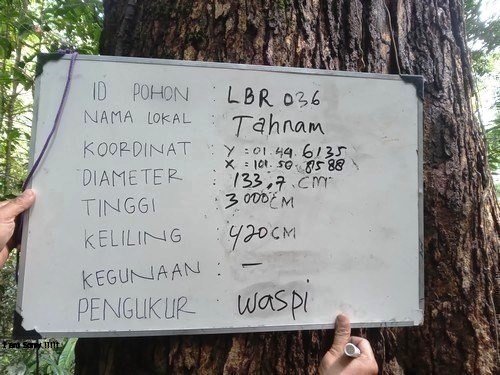 ID POHON : LBR 036
NAMA LOKAL : Tahnam
KOORDINAT : Y = 01.44.6135
X = 101.50.8588
DIAMETER : 133,7 CM
TINGGI : 3000 CM
KELILING : 420 CM
KEGUNAAN : —
PENGUKUR : waspi